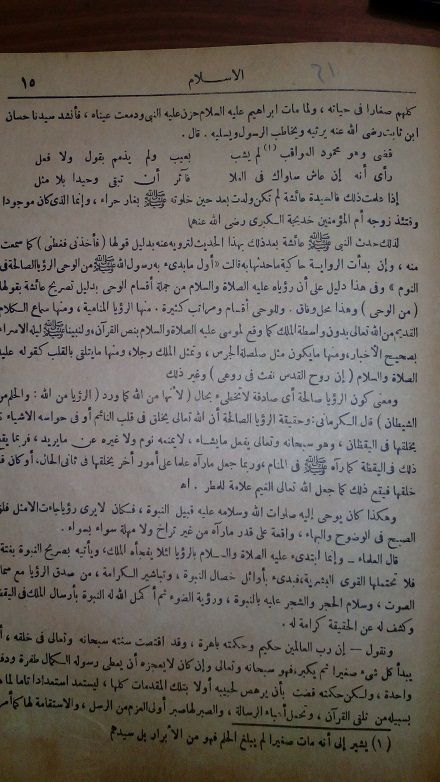 ١٥ الاسلام ٣١
كلهم صغارا فى حياته ، ولما مات ابراهيم عليه السلام حزن عليه النبى ودمعت عيناه ، فأنشد سيدنا حسان
ابن ثابت رضى الله عنه يرثيه ويخاطب الرسول ويسليه . قال .
قضى وهو محمود العواقب (١) لم يشب بعيب ولم يذمم بقول ولا فعل
رأى أنه إن عاش ساواك فى العلا فآثر أن تبقى وحيدا بلا مثل
إذا علمت ذلك فالسيدة عائشة لم تكن ولدت بعد حين خلوته ﷺ بغار حراء ، وإنما الذى كان موجودا
وقتئذ زوجه أم المؤمنين خديجة الكبرى رضى الله عنها
لذلك حدث النبى ﷺ عائشة بعد ذلك بهذا الحديث لترويه عنه بدليل قولها ( فأخذنى فغطنى ) كما سمعت
منه ، وإن بدأت الرواية حاكية ما حدثها به قالت « أول ما بدىء به رسول الله ﷺ من الوحى الرؤيا الصالحة فى
النوم » وفى هذا دليل على أن رؤياه عليه الصلاة والسلام من جملة أقسام الوحى بدليل تصريح عائشة بقولها
( من الوحى ) وهذا محل وفاق . وللوحى أقسام ومراتب كثيرة . منها الرؤيا المنامية ، ومنها سماع الكلام
القديم من الله تعالى بدون واسطة الملك كما وقع لموسى عليه الصلاة والسلام بنص القرآن ، ولنبينا ﷺ ليلة الاسراء
بصحيح الأخبار ، ومنها ما يكون مثل صلصلة الجرس ، وتمثل الملك رجلا ، ومنها ما يتلقى بالقلب كقوله عليه
الصلاة والسلام ( إن روح القدس نفث فى روعى ) وغير ذلك
ومعنى كون الرؤيا صالحة أى صادقة لا تخطىء بحال ( لأنها من الله كما ورد ( الرؤيا من الله : والحلم من
الشيطان ) قال الكرمانى : وحقيقة الرؤيا الصالحة أن الله تعالى يخلق فى قلب النائم أو فى حواسه الأشياء كما
يخلقها فى اليقظان ، وهو سبحانه وتعالى يفعل ما يشاء ، لا يمنعه نوم ولا غيره عن ما يريد ، فربما يقع
ذلك فى اليقظة كما رآه ﷺ فى المنام ، وربما جعل ما رآه علما على أمور أخر يخلقها فى ثانى الحال ، أو كان قد
خلقها فيقع ذلك كما جعل الله تعالى الغيم علامة للمطر . اهـ
وهكذا كان يوحى إليه صلوات الله وسلامه عليه قبيل النبوة ، فكان لا يرى رؤيا جاءت الا مثل فلق
الصبح فى الوضوح والبهاء ، واقعة على قدر ما رآه من غير تراخ ولا مهلة سواء بسواء .
قال العلماء ــ وإنما ابتدىء عليه الصلاة والسلام بالرؤيا لئلا يفجأه الملك ، ويأتيه بصريح النبوة بغتة
فلا تحتملها القوى البشرية ، فبدىء بأوائل خصال النبوة ، وتباشير الكرامة ، من صدق الرؤيا مع سماع
الصوت ، وسلام الحجر والشجر عليه بالنبوة ، ورؤية الضوء ثم أكمل الله له النبوة بأرسال الملك فى اليقظة
وكشف له عن الحقيقة كرامة له .
ونقول ــ إن رب العالمين حكيم وحكمته باهرة ، وقد اقتضت سنته سبحانه وتعالى فى خلقه ، أن
يبدأ كل شىء صغيرا ثم يكبر ، فهو سبحانه وتعالى وإن كان لا يعجزه أن يعطى رسوله الكمال طفرة ودفعة
واحدة ، ولكن حكمته قضت بأن يرهص لحبيبه أولا بتلك المقدمات كلها ، ليستعد استعدادا تاما لما هو
بسبيله من تلقى القرآن ، وتحمل أعباء الرسالة ، والصبر لها صبر أولى العزم من الرسل ، والاستقامة لها كما أمر
(١) يشير إلى أنه مات صغيرا لم يبلغ الحلم فهو من الأبرار بل سيدهم